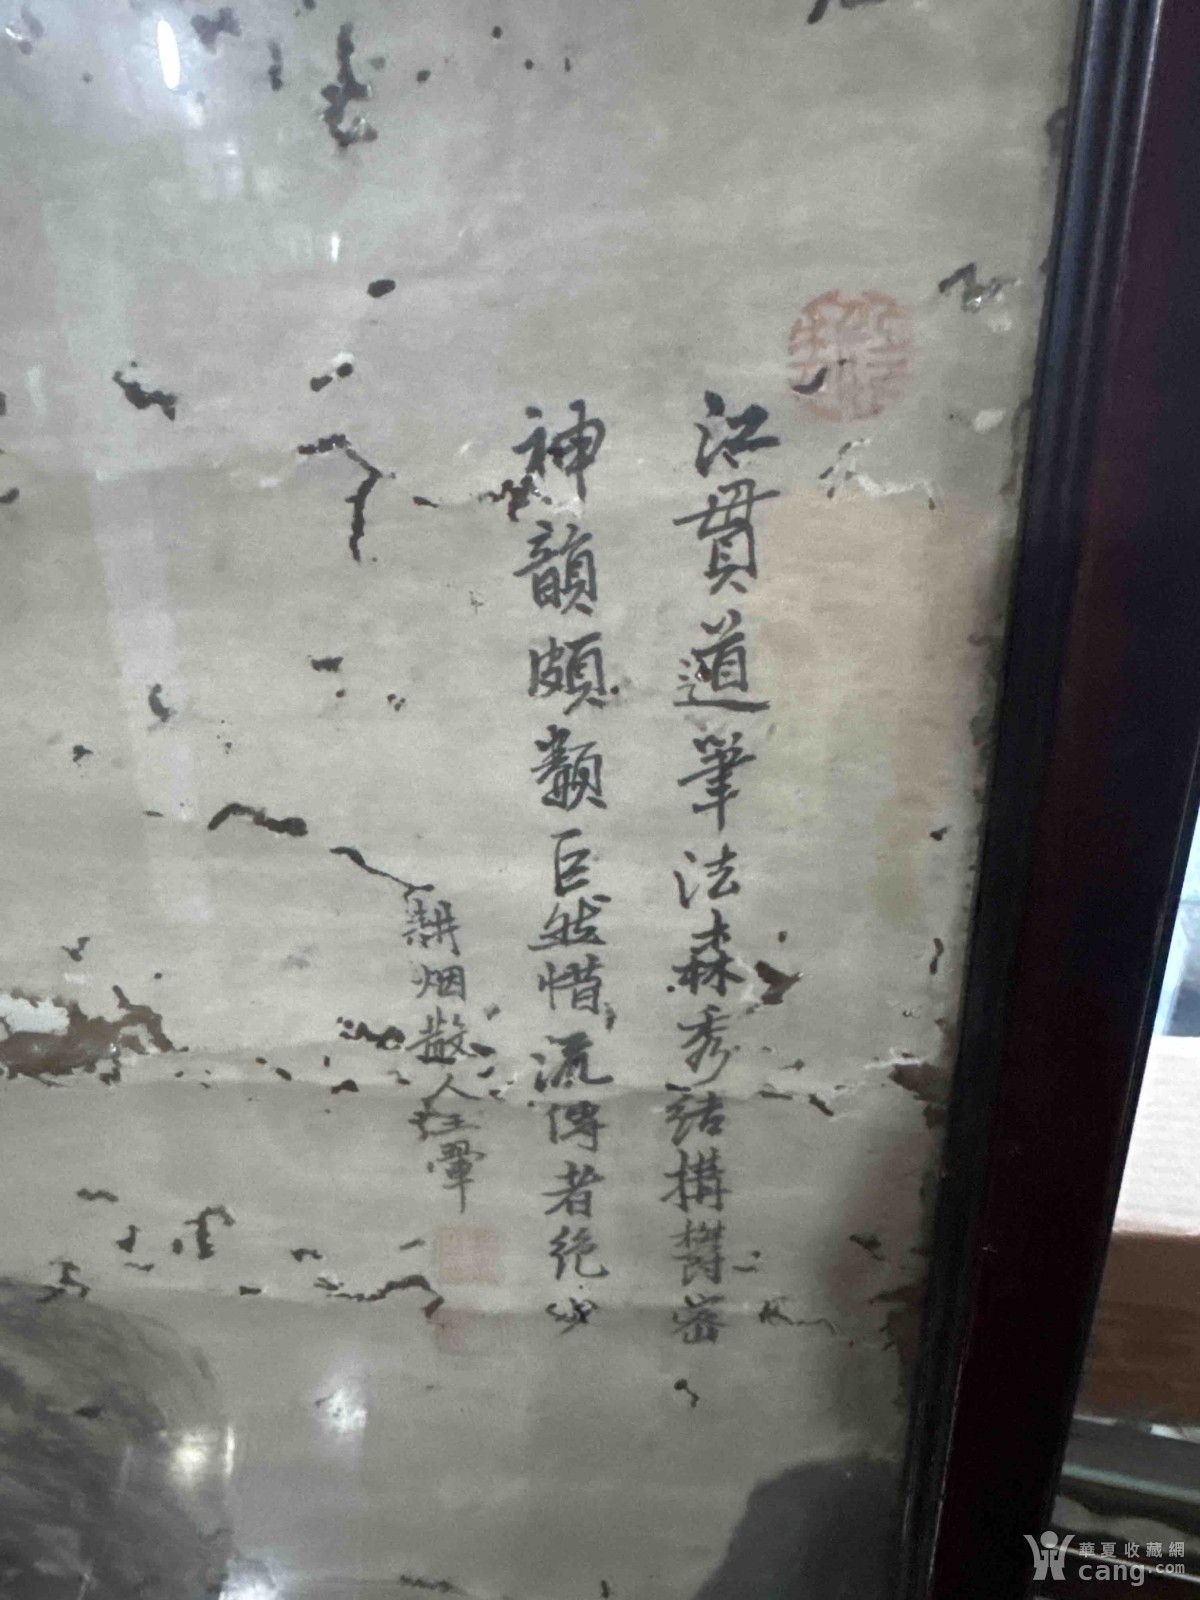 江貫道筆法森秀結構欝密
神韻頗類巨然惜流傳者絶少
耕烟散人王翬
華夏收藏網
cang.com